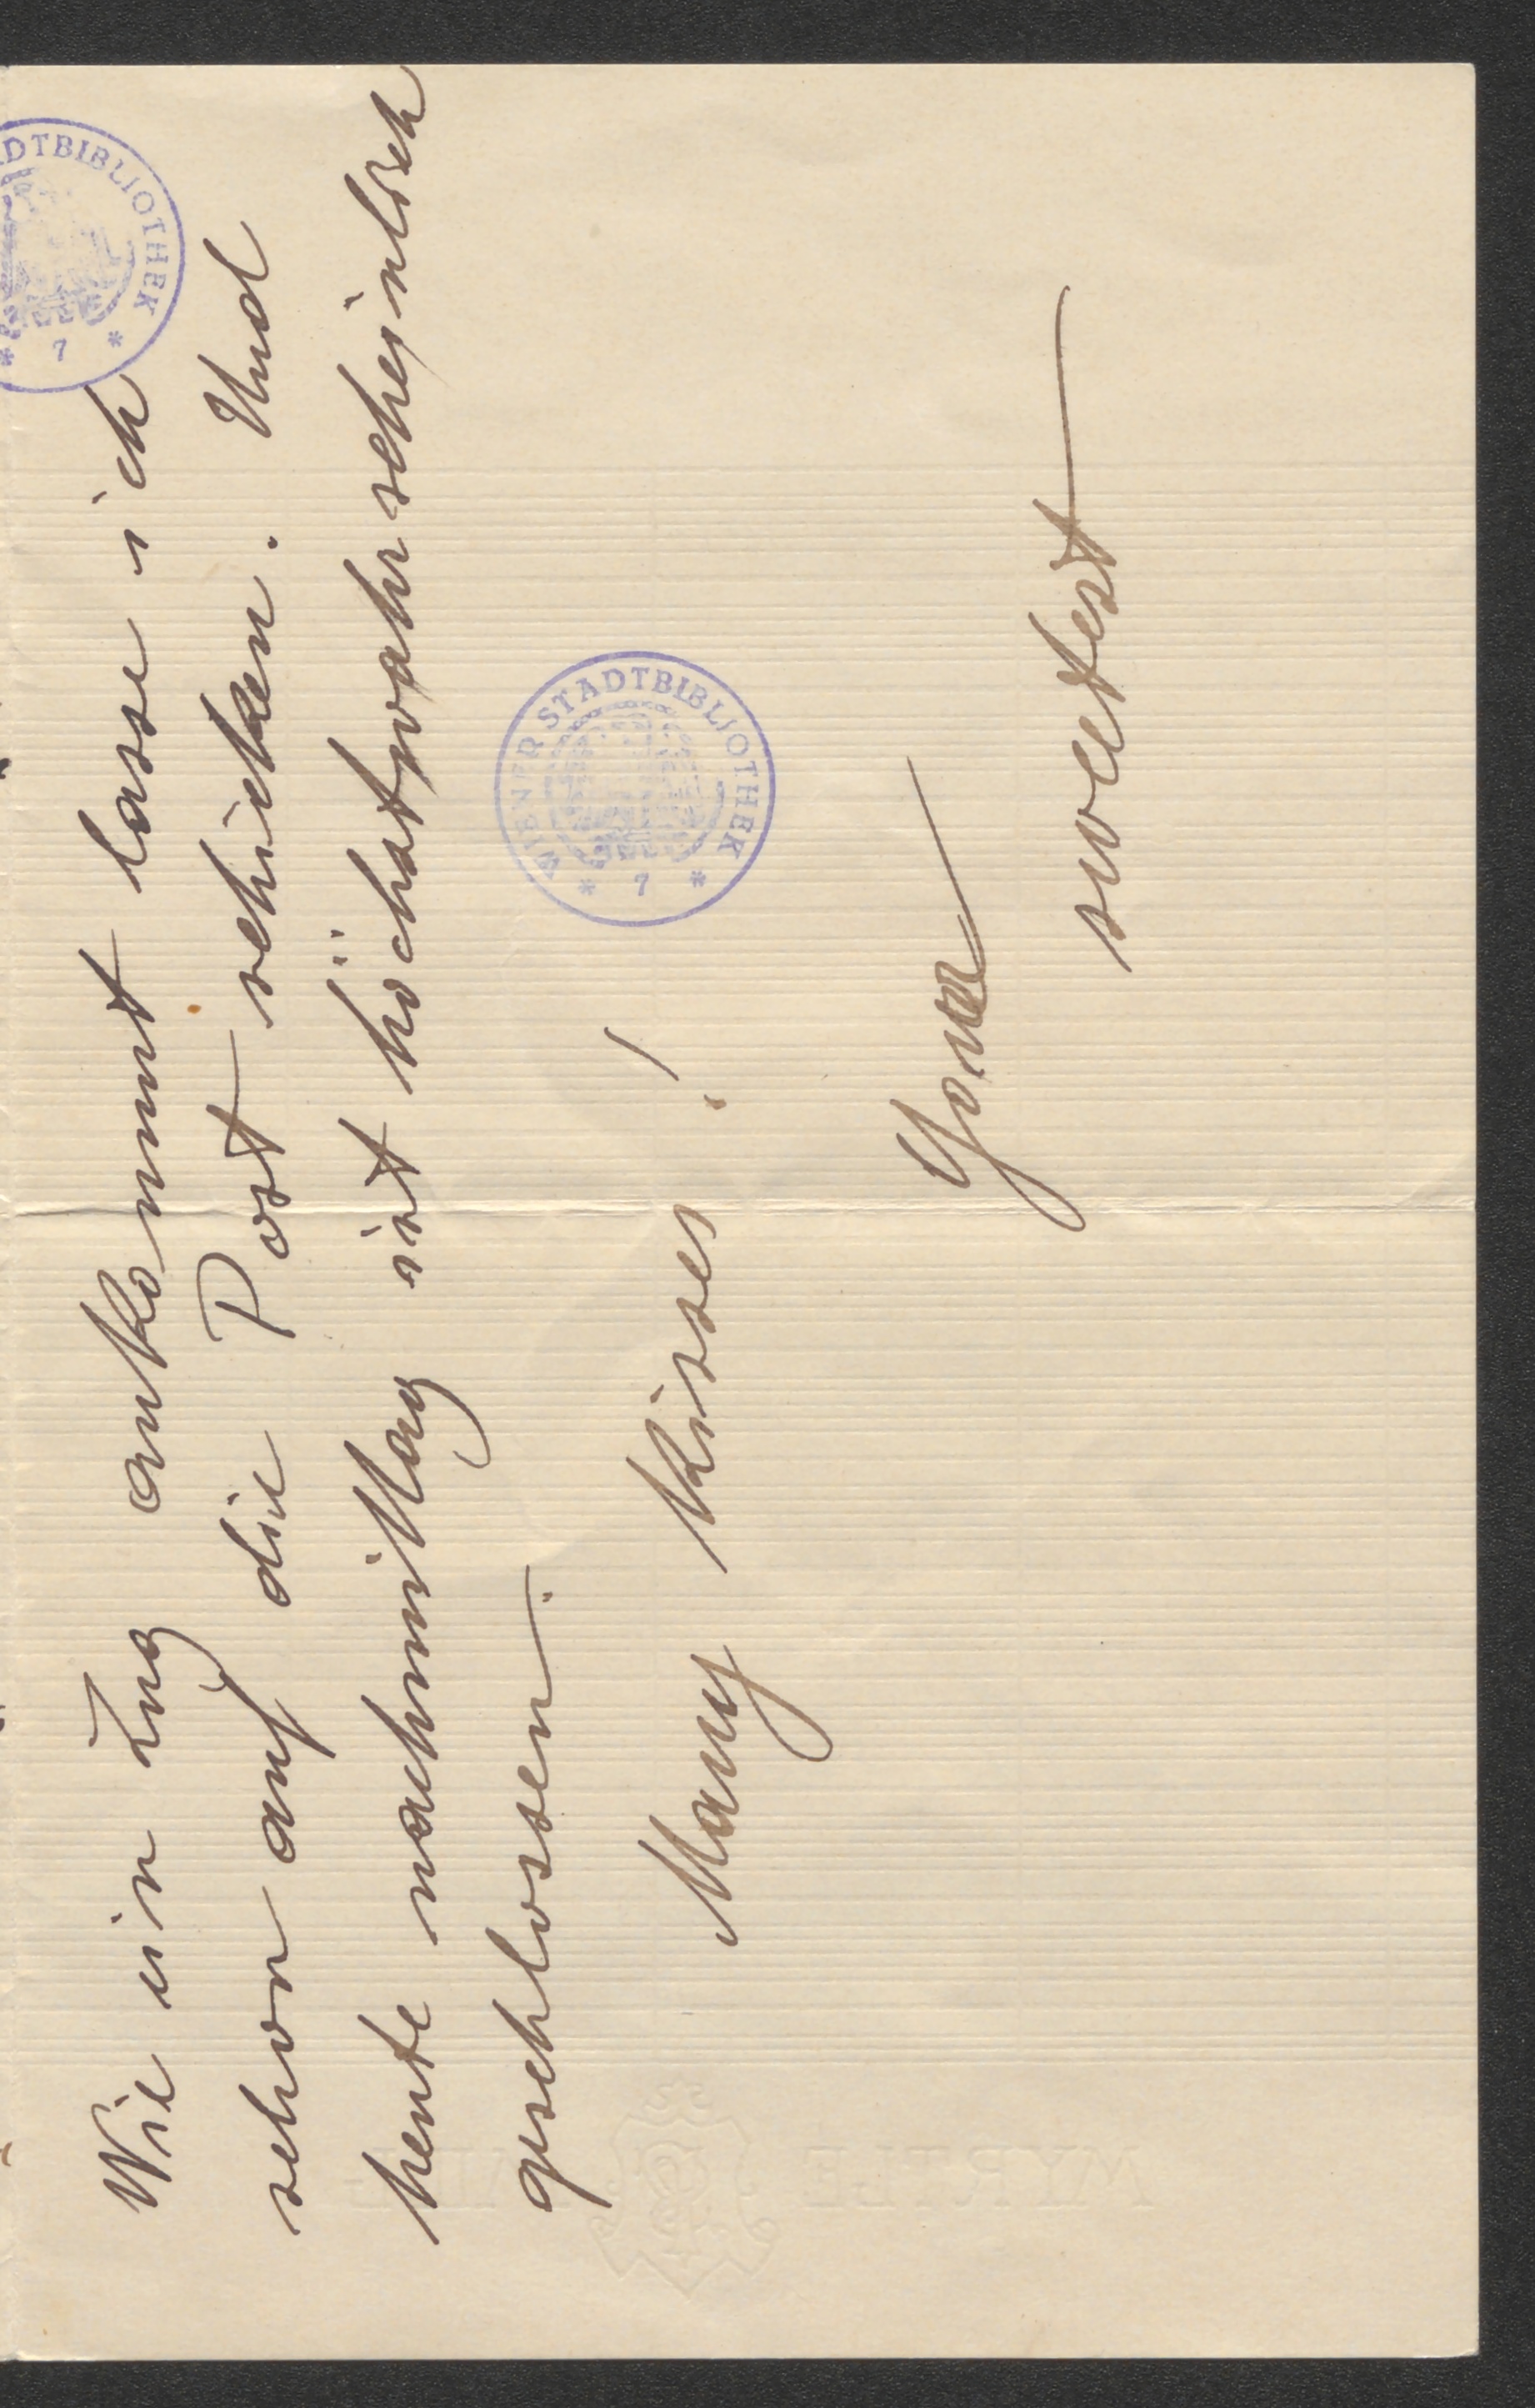 Wie ein Zug ankommt lasse ich
schon auf die Post schicken. Und
heute nachmittag ist höchstwahrscheinlich
geschlossen.
Many kisses!
Your
sweetest
WIENER STADTBIBLIOTHEK
* 7 *
ADTBIBLIOTHEK
* 7 *